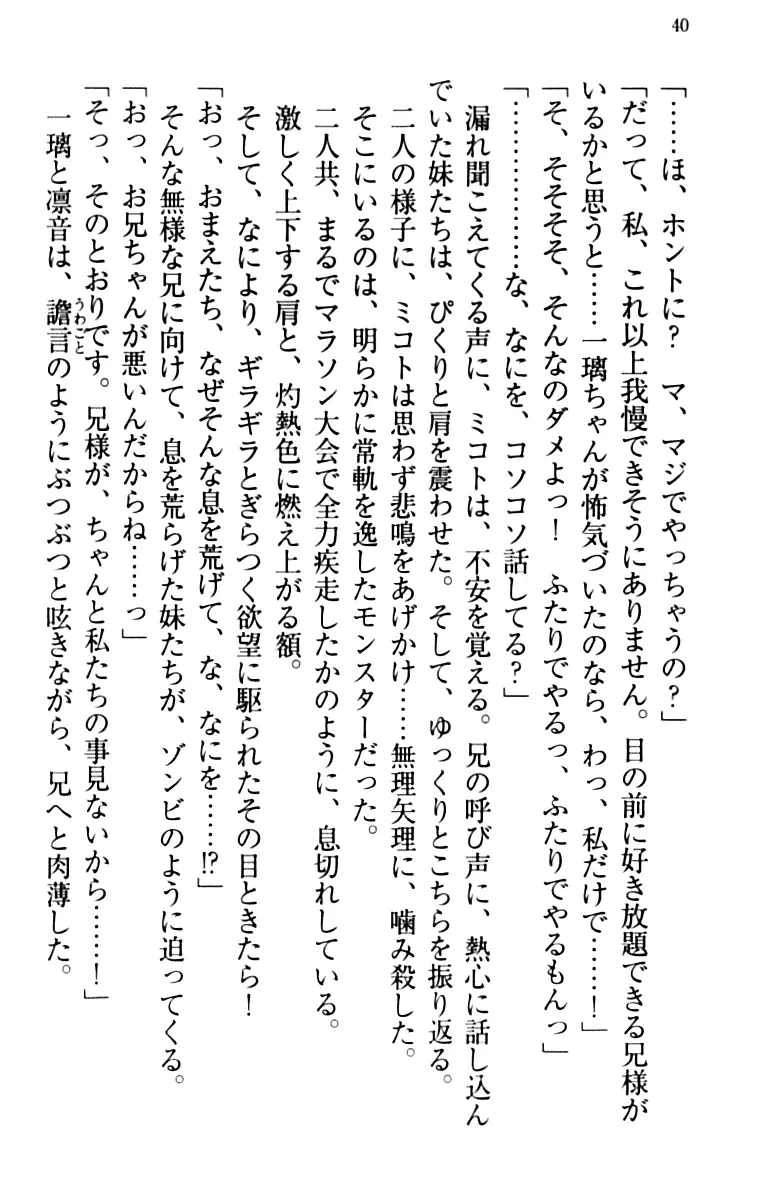 40
「……ほ、ホントに？　マ、マジでやっちゃうの？」
「だって、私、これ以上我慢できそうにありません。目の前に好き放題できる兄様が
いるかと思うと……一璃ちゃんが怖気づいたのなら、わっ、私だけで……！」
「そ、そそそそ、そんなのダメよっ！　ふたりでやるっ、ふたりでやるもんっ」
「………………な、なにを、コソコソ話してる？」
　漏れ聞こえてくる声に、ミコトは、不安を覚える。兄の呼び声に、熱心に話し込ん
でいた妹たちは、ぴくりと肩を震わせた。そして、ゆっくりとこちらを振り返る。
　二人の様子に、ミコトは思わず悲鳴をあげかけ……無理矢理に、噛み殺した。
　そこにいるのは、明らかに常軌を逸したモンスターだった。
　二人共、まるでマラソン大会で全力疾走したかのように、息切れしている。
　激しく上下する肩と、灼熱色に燃え上がる額。
　そして、なにより、ギラギラとぎらつく欲望に駆られたその目ときたら！
「おっ、おまえたち、なぜそんな息を荒げて、な、なにを……!?」
　そんな無様な兄に向けて、息を荒らげた妹たちが、ゾンビのように迫ってくる。
「おっ、お兄ちゃんが悪いんだからね……っ」
「そっ、そのとおりです。兄様が、ちゃんと私たちの事見ないから……！」
　一璃と凛音は、譫言うわごとのようにぶつぶつと呟きながら、兄へと肉薄した。